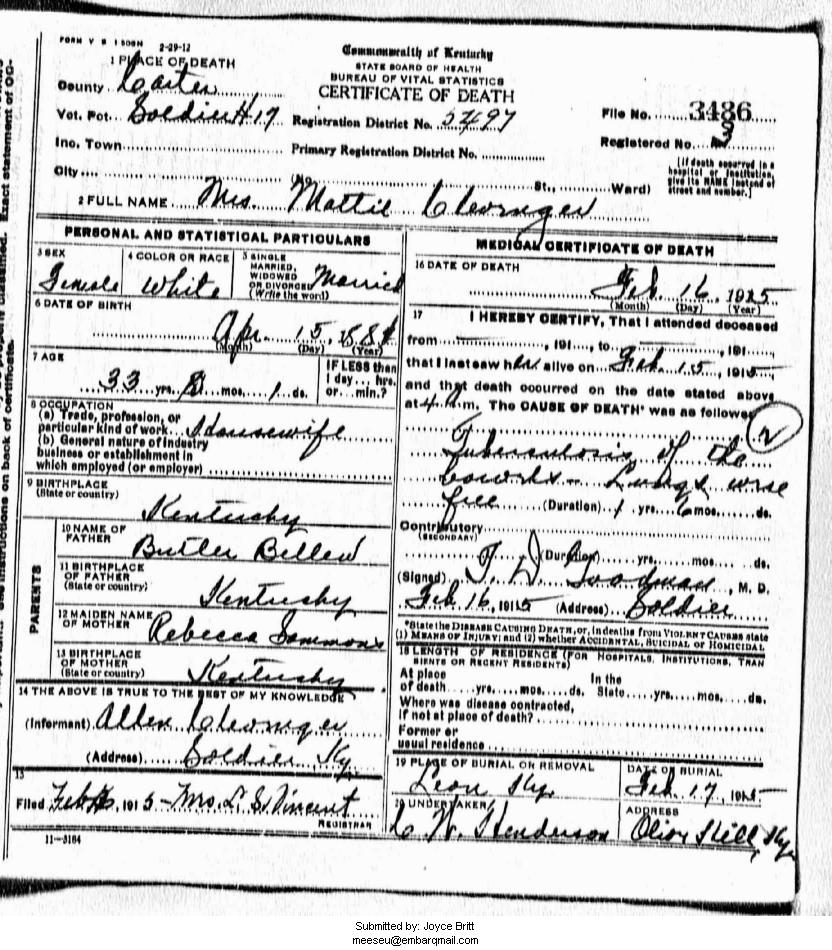 FORM V S 150BM 2-29-12
Commonwealth of Kentucky
STATE BOARD OF HEALTH
BUREAU OF VITAL STATISTICS
CERTIFICATE OF DEATH
1 PLACE OF DEATH
County Carter
Vot. Pct. Soldier #17
Registration District No. 5497
File No. 3486
Registered No. 3
Inc. Town
Primary Registration District No.
City (No. St., Ward)
[If death occurred in a hospital or institution, give its NAME instead of street and number.]
2 FULL NAME Mrs. Mattie Clevenger
PERSONAL AND STATISTICAL PARTICULARS
3 SEX Female
4 COLOR OR RACE White
5 SINGLE MARRIED, WIDOWED OR DIVORCED (Write the word) Married
6 DATE OF BIRTH
Apr 15, 1881
(Month) (Day) (Year)
7 AGE
33 yrs. mos. 1 ds.
IF LESS than 1 day... hrs. or... min.?
8 OCCUPATION
(a) Trade, profession, or
particular kind of work Housewife
(b) General nature of industry
business or establishment in
which employed (or employer)
9 BIRTHPLACE
(State or country)
Kentucky
PARENTS
10 NAME OF FATHER
Butler Bellew
11 BIRTHPLACE OF FATHER
(State or country)
Kentucky
12 MAIDEN NAME OF MOTHER Rebecca Sammons
13 BIRTHPLACE OF MOTHER
(State or country) Kentucky
14 THE ABOVE IS TRUE TO THE BEST OF MY KNOWLEDGE
(Informant) Allen Clevenger
(Address) Soldier Ky.
15
Filed Feb 1915 Mrs. L. S. Vincent
REGISTRAR
11—3184
MEDICAL CERTIFICATE OF DEATH
16 DATE OF DEATH
Feb. 16, 1915
(Month) (Day) (Year)
17 I HEREBY CERTIFY, That I attended deceased
from , 191 , to , 191 ,
that I last saw her alive on Feb. 15, 1915,
and that death occurred on the date stated above
at 4 a.m. The CAUSE OF DEATH* was as follows:
Tuberculosis of the
bowels - Lungs were
free (Duration) 1 yrs. 6 mos. ds.
Contributory
(SECONDARY)
(Duration) yrs. mos. ds.
(Signed) T. D. Goodman, M. D.
Feb 16, 1915 (Address) Soldier
*State the DISEASE CAUSING DEATH, or, in deaths from VIOLENT CAUSES state
(1) MEANS OF INJURY; and (2) whether ACCIDENTAL, SUICIDAL or HOMICIDAL
18 LENGTH OF RESIDENCE (FOR HOSPITALS, INSTITUTIONS, TRAN
SIENTS OR RECENT RESIDENTS)
At place of death yrs. mos. ds. In the State yrs. mos. ds.
Where was disease contracted,
if not at place of death?
Former or
usual residence
19 PLACE OF BURIAL OR REMOVAL
Leon Ky.
DATE OF BURIAL
Feb. 17, 1915
20 UNDERTAKER
C. W. Henderson
ADDRESS
Olive Hill, Ky.
Submitted by: Joyce Britt
meeseu@embarqmail.com